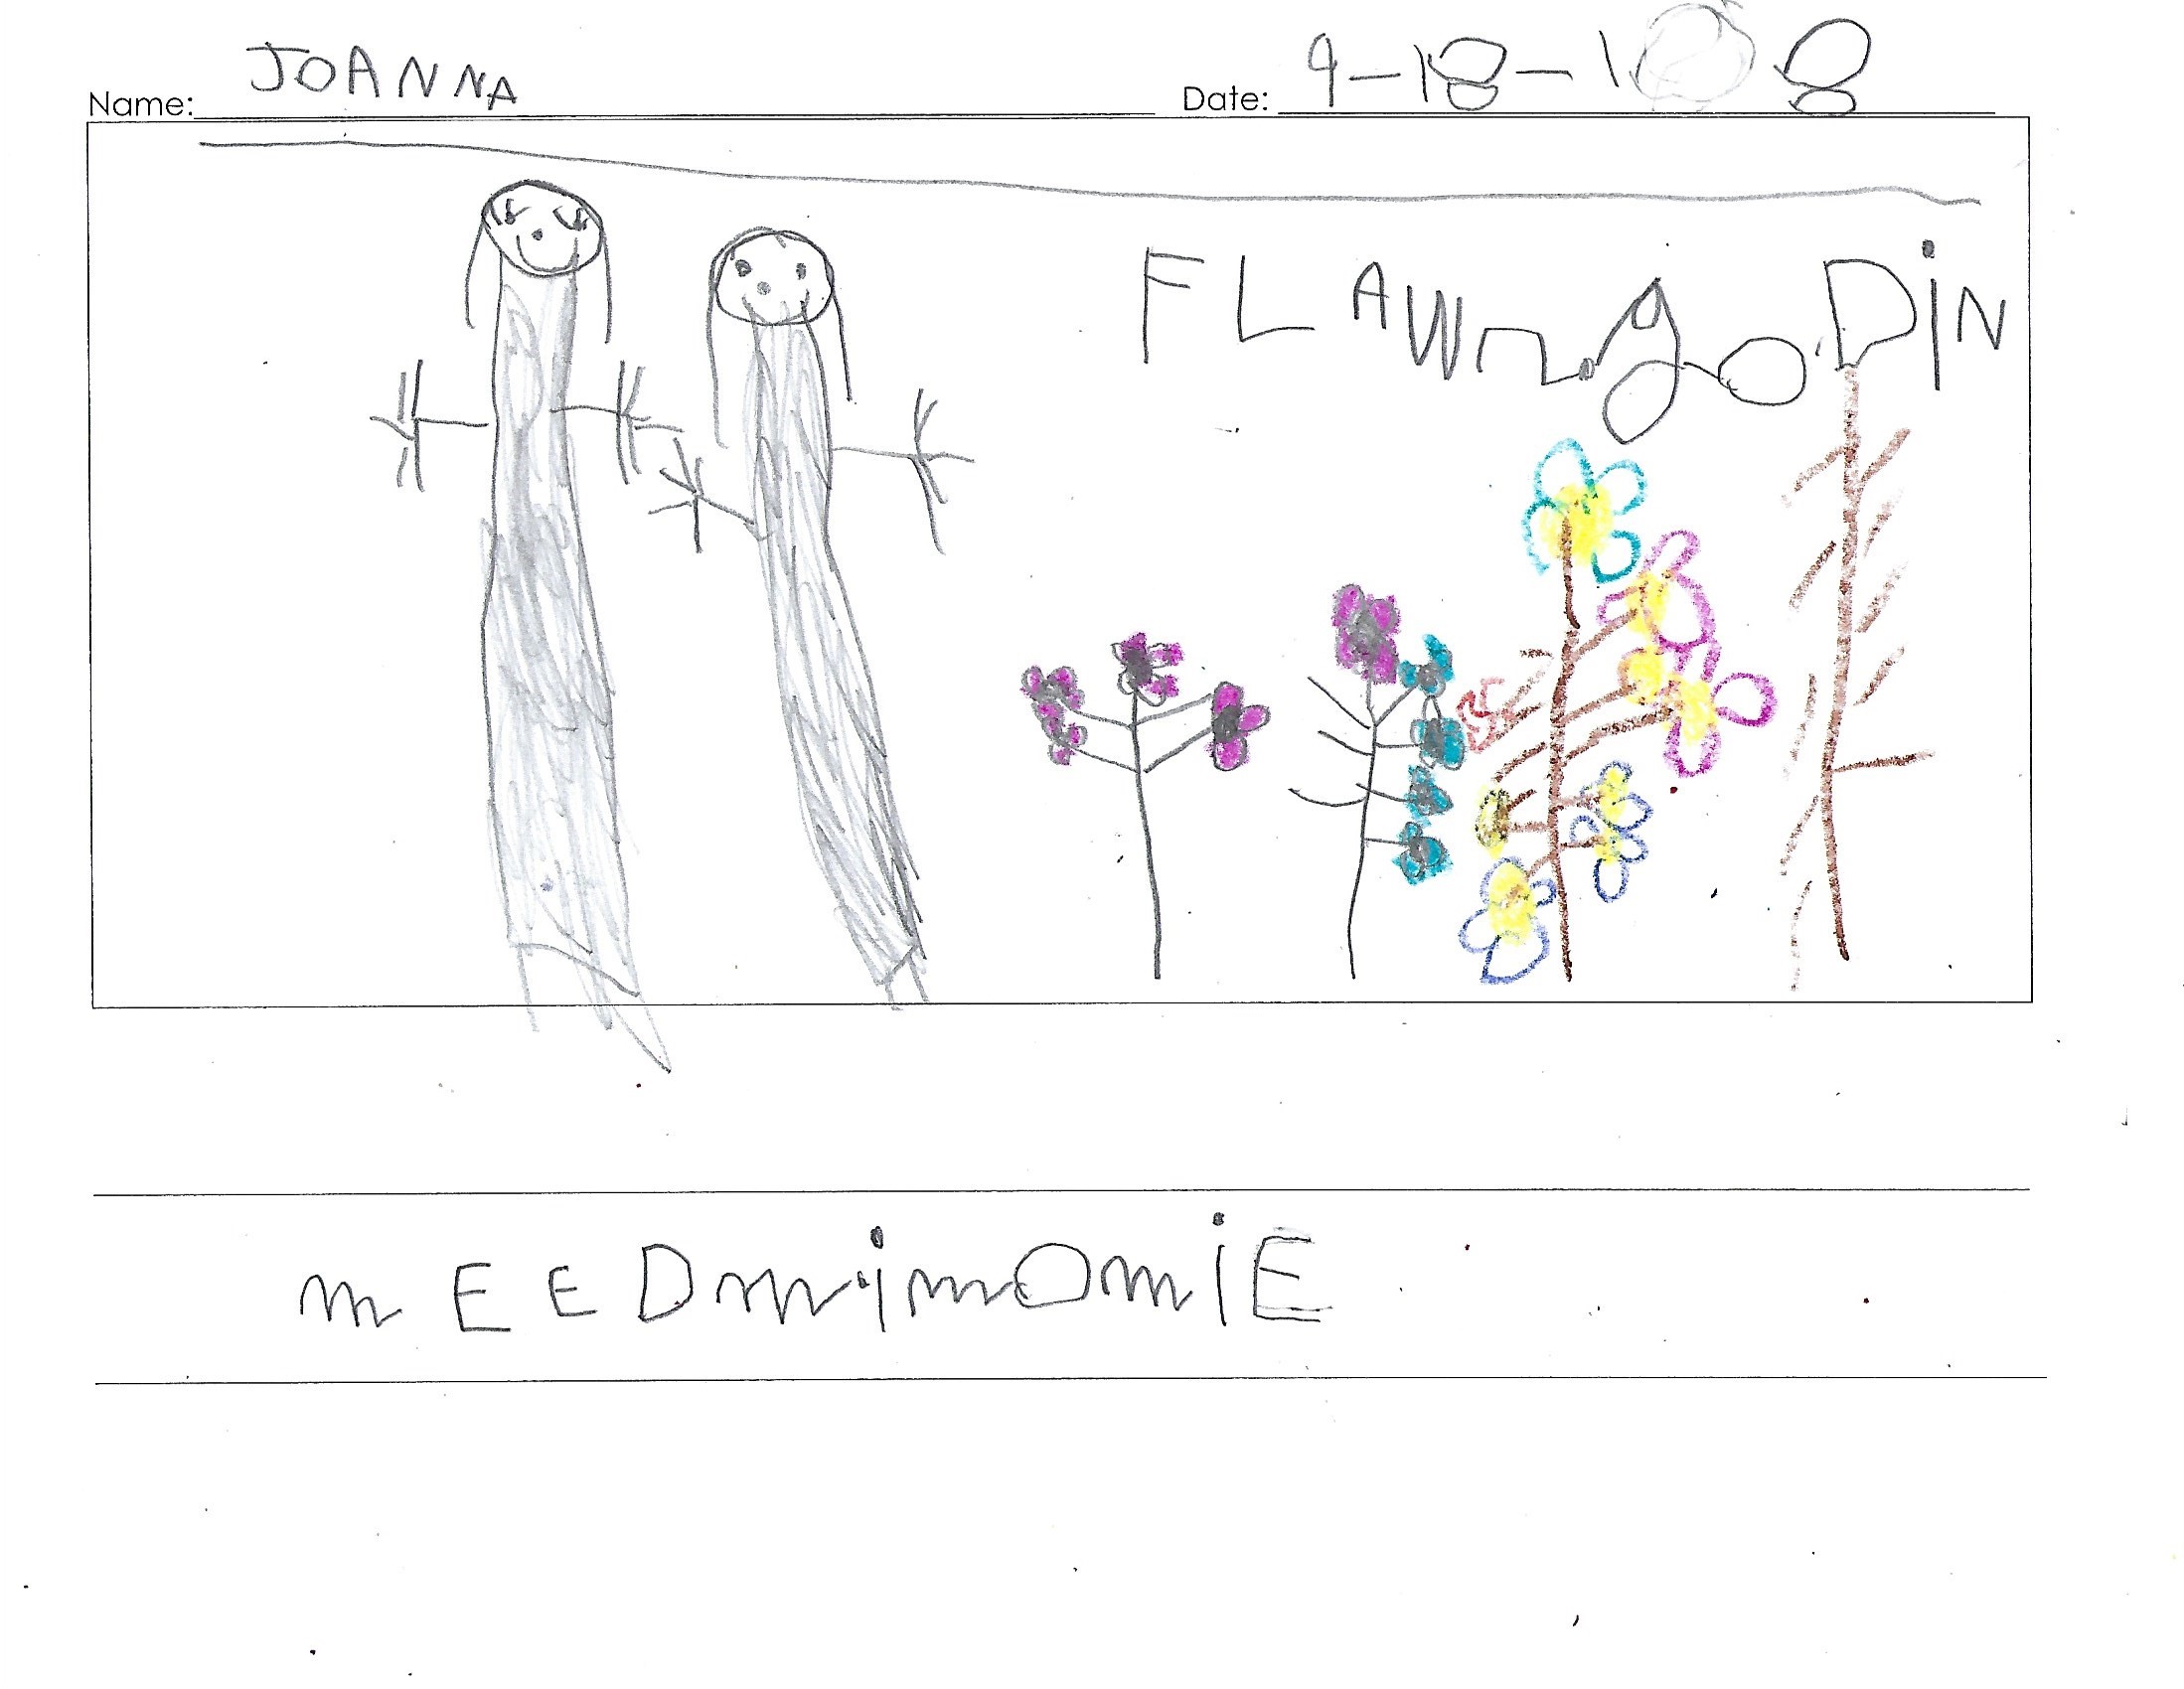 Name: JOANNA Date: 9-18-18
FLAWr.goDiN
mEEDmyimOmiE